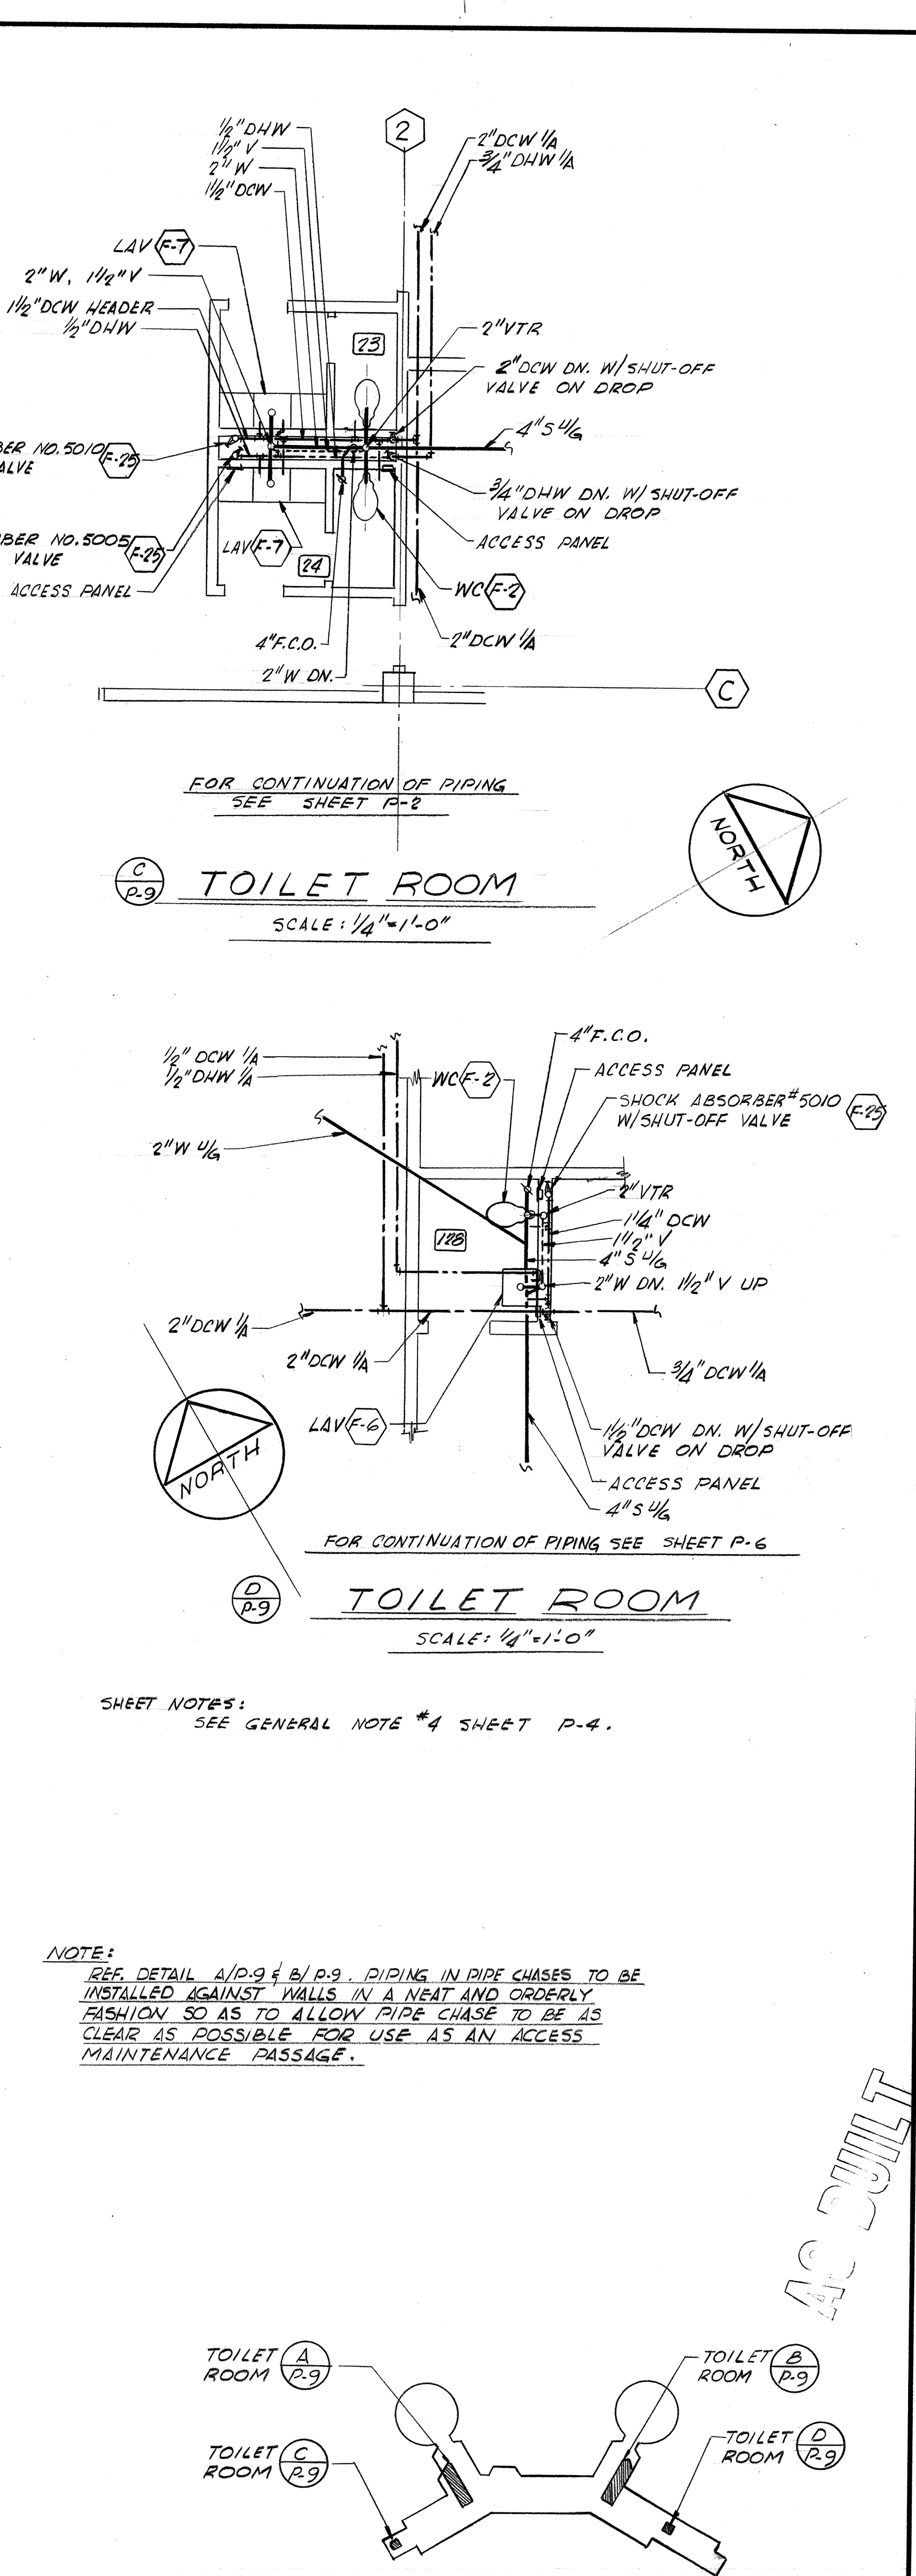 1/2" DHW
1 1/2" V
2" W
1 1/2" DCW
2
2" DCW 1/A
3/4" DHW 1/A
LAV F-7
2" W, 1 1/2" V
1 1/2" DCW HEADER
1/2" DHW
23
2" VTR
2" DCW DN. W/SHUT-OFF
VALVE ON DROP
4" S U/G
BER NO. 5010 F-25
ALVE
3/4" DHW DN. W/SHUT-OFF
VALVE ON DROP
BER NO. 5005 F-25
VALVE
LAV F-7
24
ACCESS PANEL
ACCESS PANEL
WC F-2
4" F.C.O.
2" DCW 1/A
2" W DN.
C
FOR CONTINUATION OF PIPING
SEE SHEET P-2
NORTH
C
P-9
TOILET ROOM
SCALE: 1/4"=1'-0"
4" F.C.O.
1/2" DCW 1/A
1/2" DHW 1/A
WC F-2
ACCESS PANEL
SHOCK ABSORBER #5010
W/SHUT-OFF VALVE
F-25
2" W U/G
2" VTR
1 1/4" DCW
1 1/2" V
4" S U/G
128
2" W DN. 1 1/2" V UP
2" DCW 1/A
2" DCW 1/A
3/4" DCW 1/A
LAV F-6
1 1/2" DCW DN. W/SHUT-OFF
VALVE ON DROP
NORTH
ACCESS PANEL
4" S U/G
FOR CONTINUATION OF PIPING SEE SHEET P-6
D
P-9
TOILET ROOM
SCALE: 1/4"=1'-0"
SHEET NOTES:
SEE GENERAL NOTE #4 SHEET P-4.
NOTE:
REF. DETAIL A/P-9 & B/P-9. PIPING IN PIPE CHASES TO BE
INSTALLED AGAINST WALLS IN A NEAT AND ORDERLY
FASHION SO AS TO ALLOW PIPE CHASE TO BE AS
CLEAR AS POSSIBLE FOR USE AS AN ACCESS
MAINTENANCE PASSAGE.
AS BUILT
TOILET
ROOM
A
P-9
TOILET
ROOM
B
P-9
TOILET
ROOM
C
P-9
TOILET
ROOM
D
P-9